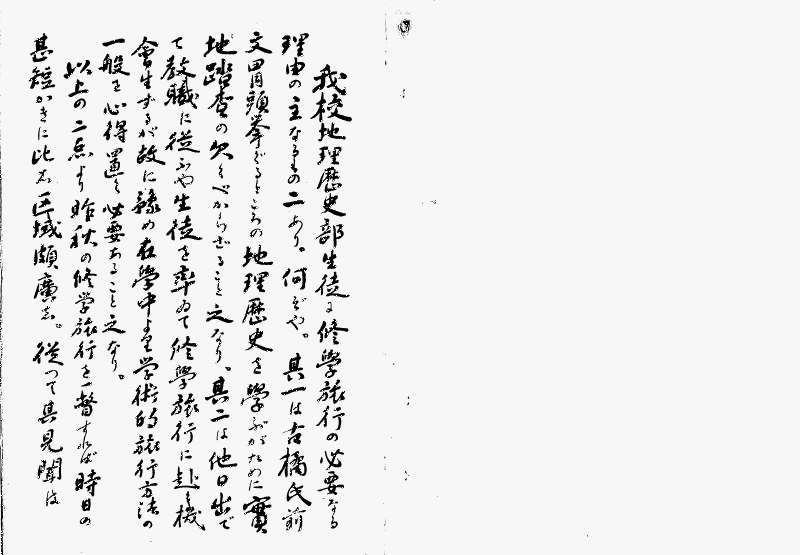 我校地理歴史部生徒に修學旅行の必要なる
理由の主なるもの二あり。何ぞや。其一は古橘氏前
文冒頭挙ぐるところの地理歴史を學ぶがために實
地踏査の欠くべからざること之なり。其二は他日出で
て教職に従ふや生徒を率ゐて修學旅行に赴く機
會生ずるが故に豫め在學中より学術的旅行方法の
一般を心得置く必要あること之なり。
以上の二点より昨秋の修学旅行を一瞥すれば時日の
甚短かきに比し区域頗廣し。従つて其見聞は